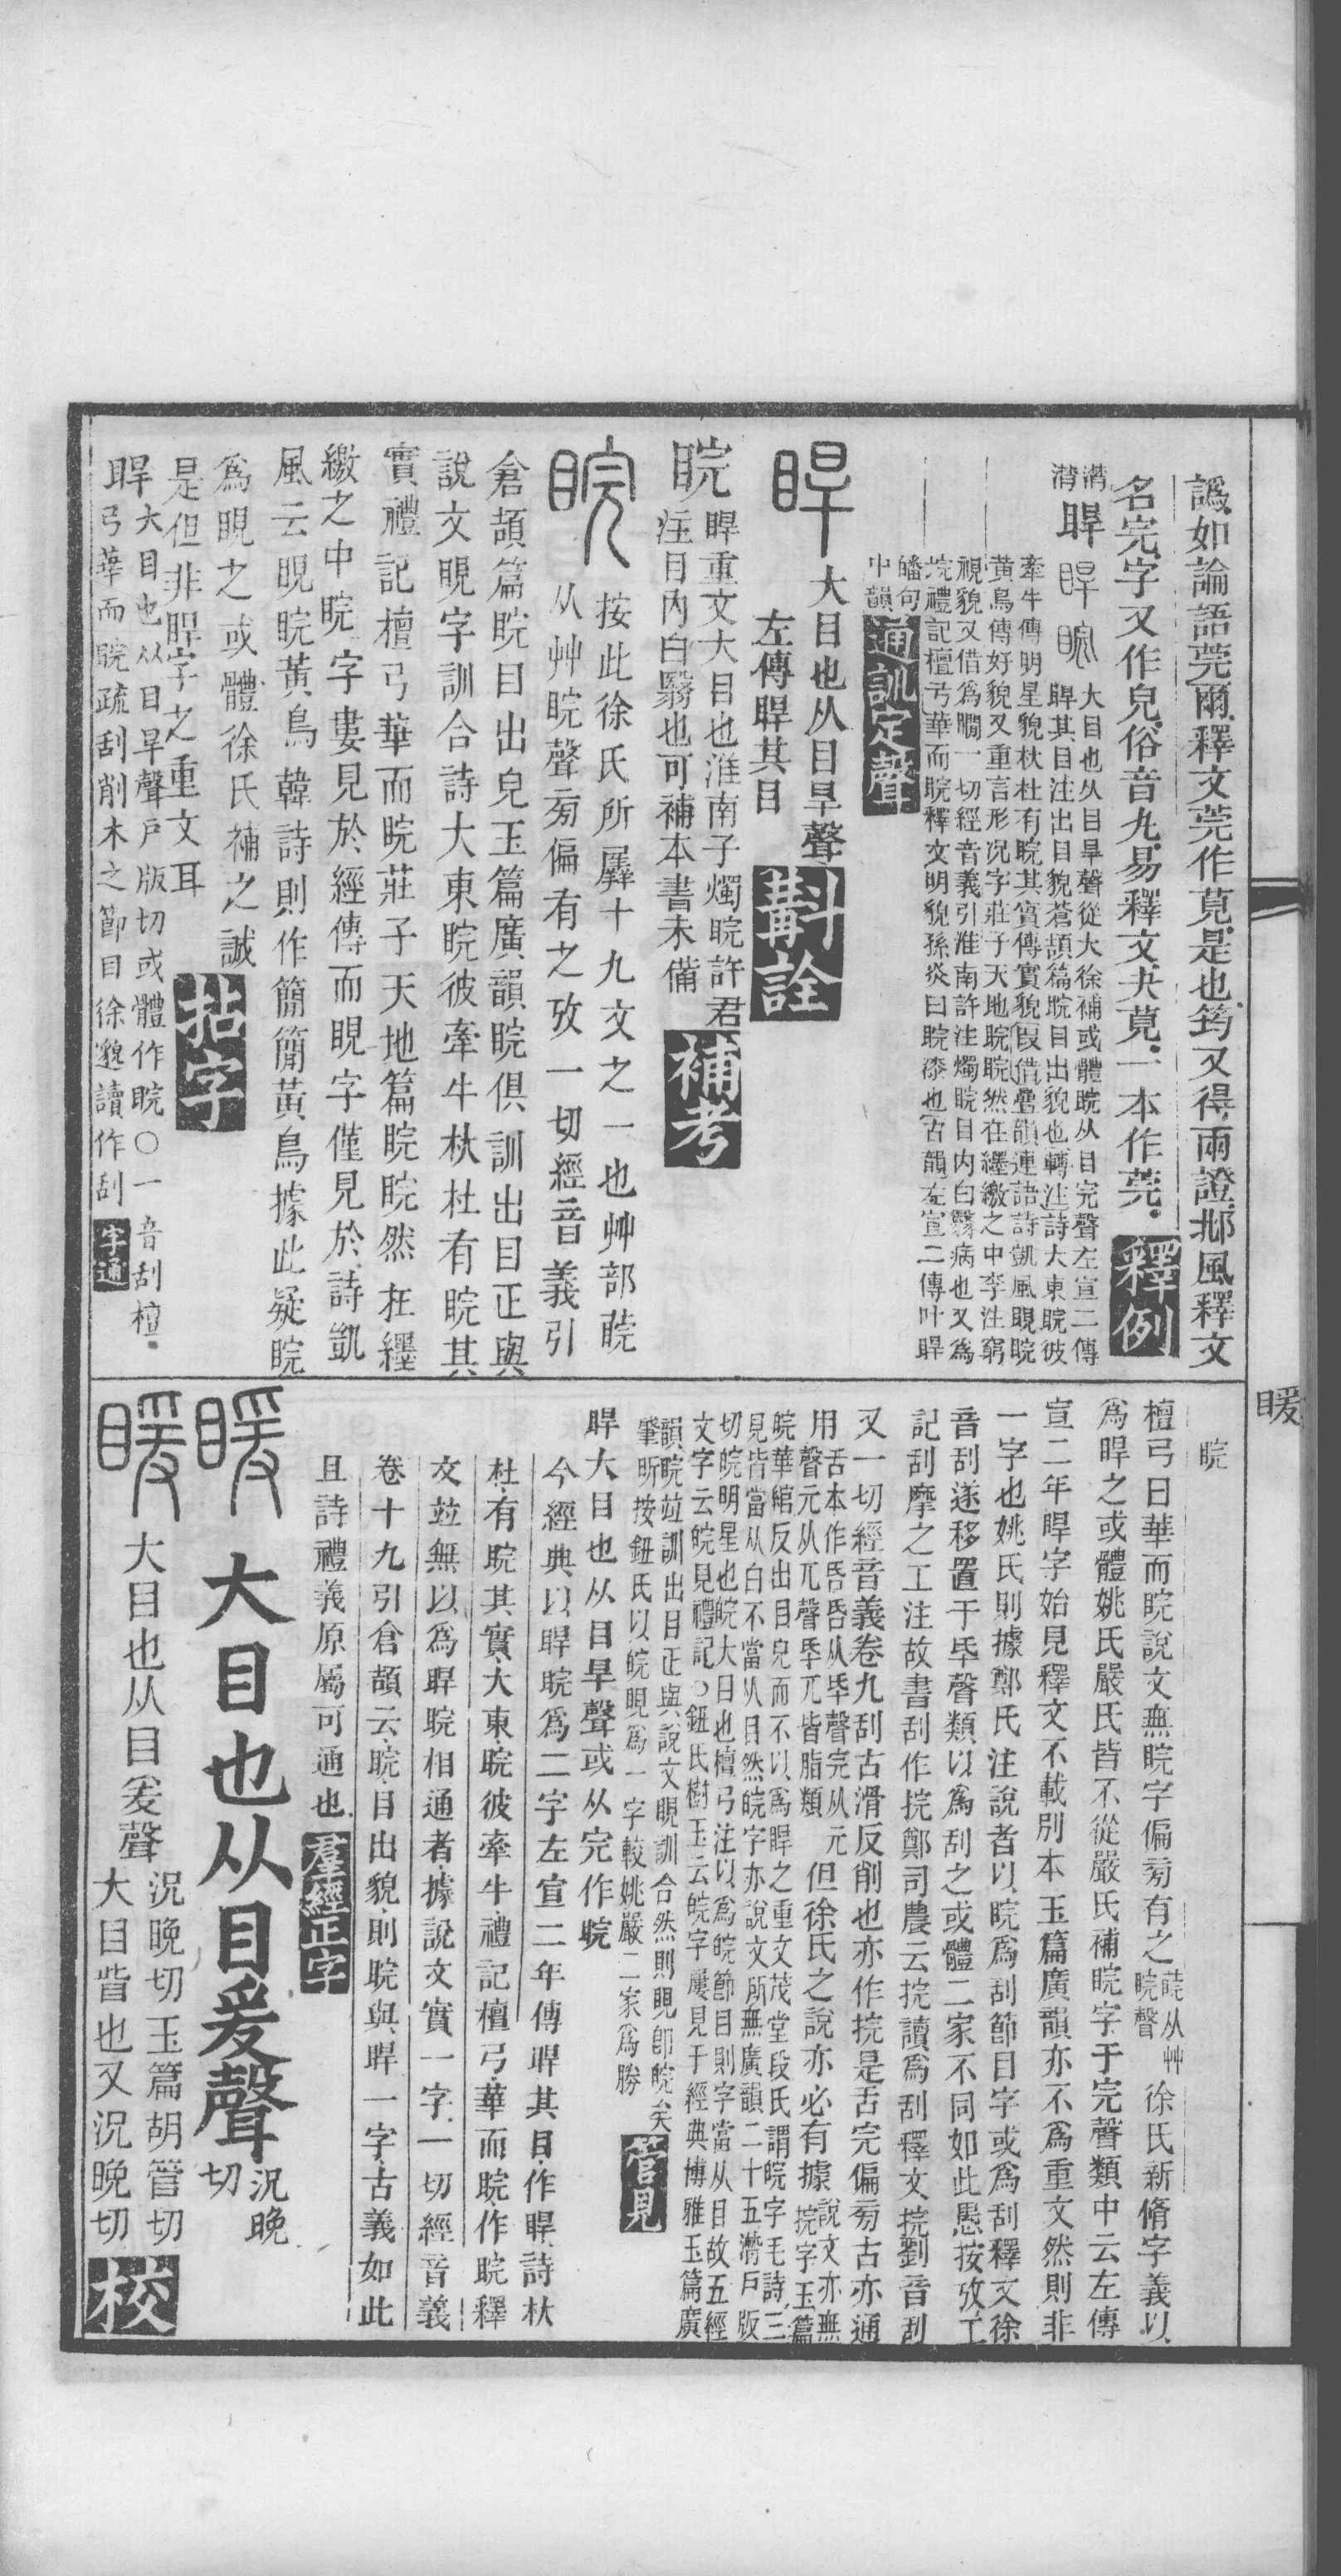 譌如論語莞爾釋文莞作莧是也筠又得兩證邶風釋文
名完字又作皃俗音丸易釋文夬莧一本作莞 釋例
潸潸 睅 睅 睆 大目也从目旱聲從大徐補或體睆从目完聲左宣二傳
睅其目注出目貌蒼頡篇睆目出貌也轉注詩大東睆彼
牽牛傳明星貌杕杜有睆其實傳實貌叚借疊韻連語詩凱風睍睆
黃鳥傳好貌又重言形況字莊子天地睆睆然在纆繳之中李注窮
視貌又借爲瞯一切經音義引淮南許注燭睆目內白翳病也又爲
垸禮記檀弓華而睆釋文明貌孫炎曰睆漆也古韻左宣二傳叶睅
皤句
中韻 通訓定聲
睅 大目也从目旱聲 斠詮
左傳睅其目
睆 睅重文大目也淮南子燭睆許君
注目內白翳也可補本書未備 補考
睆 按此徐氏所羼十九文之一也艸部莞
从艸睆聲㫄偏有之攷一切經音義引
倉頡篇睆目出皃玉篇廣韻睆俱訓出目正與
說文睍字訓合詩大東睆彼牽牛杕杜有睆其
實禮記檀弓華而睆莊子天地篇睆睆然在纆
繳之中睆字婁見於經傳而睍字僅見於詩凱
風云睍睆黃鳥韓詩則作簡簡黃鳥據此疑睆
爲睍之或體徐氏補之誠
是但非睅字之重文耳 拈字
睅 大目也从目旱聲戶版切或體作睆○一音刮檀
弓華而睆疏刮削木之節目徐邈讀作刮 字通
暖
睆
檀弓曰華而睆說文無睆字偏㫄有之 莞从艸睆聲 徐氏新脩字義以
爲睅之或體姚氏嚴氏皆不從嚴氏補睆字于完聲類中云左傳
宣二年睅字始見釋文不載別本玉篇廣韻亦不爲重文然則非
一字也姚氏則據鄭氏注說者以睆爲刮節目字或爲刮釋文徐
音刮遂移置于氒聲類以爲刮之或體二家不同如此愚按攷工
記刮摩之工注故書刮作捖鄭司農云捖讀爲刮釋文捖劉音刮
又一切經音義卷九刮古滑反削也亦作捖是舌完偏㫄古亦通
用 舌本作𠯑𠯑从氒聲完从元
聲元从兀聲氒兀皆脂類 但徐氏之說亦必有據 說文亦無
捖字玉篇
睆華綰反出目皃而不以爲睅之重文茂堂段氏謂睆字毛詩三
見皆當从白不當从目然皖字亦說文所無廣韻二十五潸戶版
切皖明星也睆大目也檀弓注以爲睆節目則字當从目故五經
文字云睆見禮記○鈕氏樹玉云睆字屢見于經典博雅玉篇廣
韻睆竝訓出目正與說文睍訓合然則睍卽睆矣
肇昕按鈕氏以睆睍爲一字較姚嚴二家爲勝 管見
睅大目也从目旱聲或从完作睆
今經典以睅睆爲二字左宣二年傳睅其目作睅詩杕
杜有睆其實大東睆彼牽牛禮記檀弓華而睆作睆釋
文竝無以爲睅睆相通者據說文實一字一切經音義
卷十九引倉頡云睆目出貌則睆與睅一字古義如此
且詩禮義原屬可通也 羣經正字
暖 大目也从目爰聲 況晚
切
暖 大目也从目爰聲 況晚切玉篇胡管切
大目眥也又況晚切 校